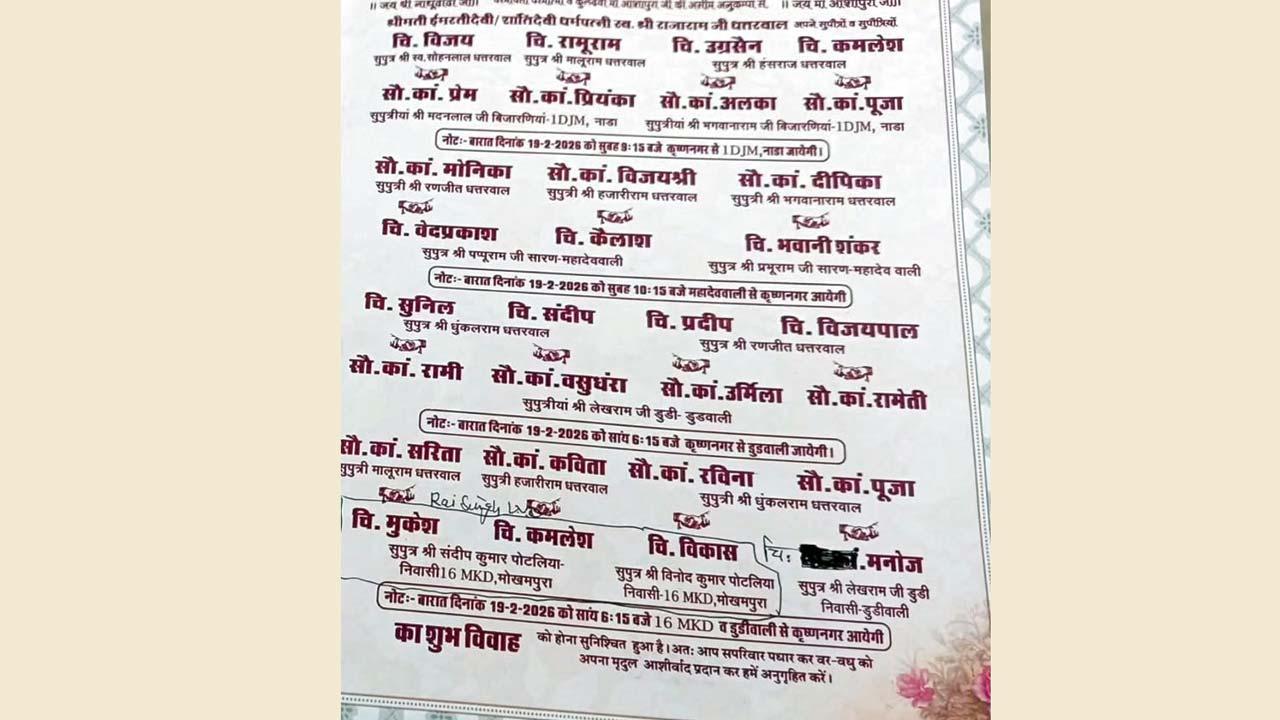 || जय श्री नाथूबाबा जी||
|| जय माँ आशापुरा जी||
श्रीमती ईमरतीदेवी/ शांतिदेवी धर्मपत्नी स्व. श्री राजाराम जी धत्तरवाल अपने सुपौत्रों व सुपौत्रियों.
चि. विजय चि. रामूराम चि. उग्रसैन चि. कमलेश
सुपुत्र श्री स्व.सोहनलाल धत्तरवाल सुपुत्र श्री मालूराम धत्तरवाल सुपुत्र श्री हंसराज धत्तरवाल
सौ.कां. प्रेम सौ.कां.प्रियंका सौ.कां.अलका सौ.कां.पूजा
सुपुत्रीयां श्री मदनलाल जी बिजारणियां-1DJM, नाडा सुपुत्रीयां श्री भगवानाराम जी बिजारणियां-1DJM, नाडा
नोटः- बारात दिनांक 19-2-2026 को सुबह 9:15 बजे कृष्णनगर से 1DJM,नाडा जायेगी।
सौ.कां. मोनिका सौ.कां. विजयश्री सौ.कां. दीपिका
सुपुत्री श्री रणजीत धत्तरवाल सुपुत्री श्री हजारीराम धत्तरवाल सुपुत्री श्री भगवानाराम धत्तरवाल
चि. वेदप्रकाश चि. कैलाश चि. भवानी शंकर
सुपुत्र श्री पप्पूराम जी सारण-महादेववाली सुपुत्र श्री प्रभूराम जी सारण-महादेव वाली
नोटः- बारात दिनांक 19-2-2026 को सुबह 10:15 बजे महादेववाली से कृष्णनगर आयेगी
चि. सुनिल चि. संदीप चि. प्रदीप चि. विजयपाल
सुपुत्र श्री धुंकलराम धत्तरवाल सुपुत्र श्री रणजीत धत्तरवाल
सौ.कां. रामी सौ.कां.वसुधंरा सौ.कां.उर्मिला सौ.कां.रामेती
सुपुत्रीयां श्री लेखराम जी डुडी- डुडवाली
नोटः- बारात दिनांक 19-2-2026 को सांय 6:15 बजे कृष्णनगर से डुडवाली जायेगी।
सौ.कां. सरिता सौ.कां. कविता सौ.कां. रविना सौ.कां.पूजा
सुपुत्री मालूराम धत्तरवाल सुपुत्री हजारीराम धत्तरवाल सुपुत्री श्री धुंकलराम धत्तरवाल
Rai Singh
चि. मुकेश चि. कमलेश चि. विकास चि: .मनोज
सुपुत्र श्री संदीप कुमार पोटलिया- सुपुत्र श्री विनोद कुमार पोटलिया सुपुत्र श्री लेखराम जी डुडी
निवासी16 MKD,मोखमपुरा निवासी-16 MKD,मोखमपुरा निवासी-डुडीवाली
नोटः- बारात दिनांक 19-2-2026 को सांय 6:15 बजे 16 MKD व डुडीवाली से कृष्णनगर आयेगी
का शुभ विवाह को होना सुनिश्चित हुआ है। अतः आप सपरिवार पधार कर वर-वधु को
अपना मृदुल आशीर्वाद प्रदान कर हमें अनुगृहित करें।